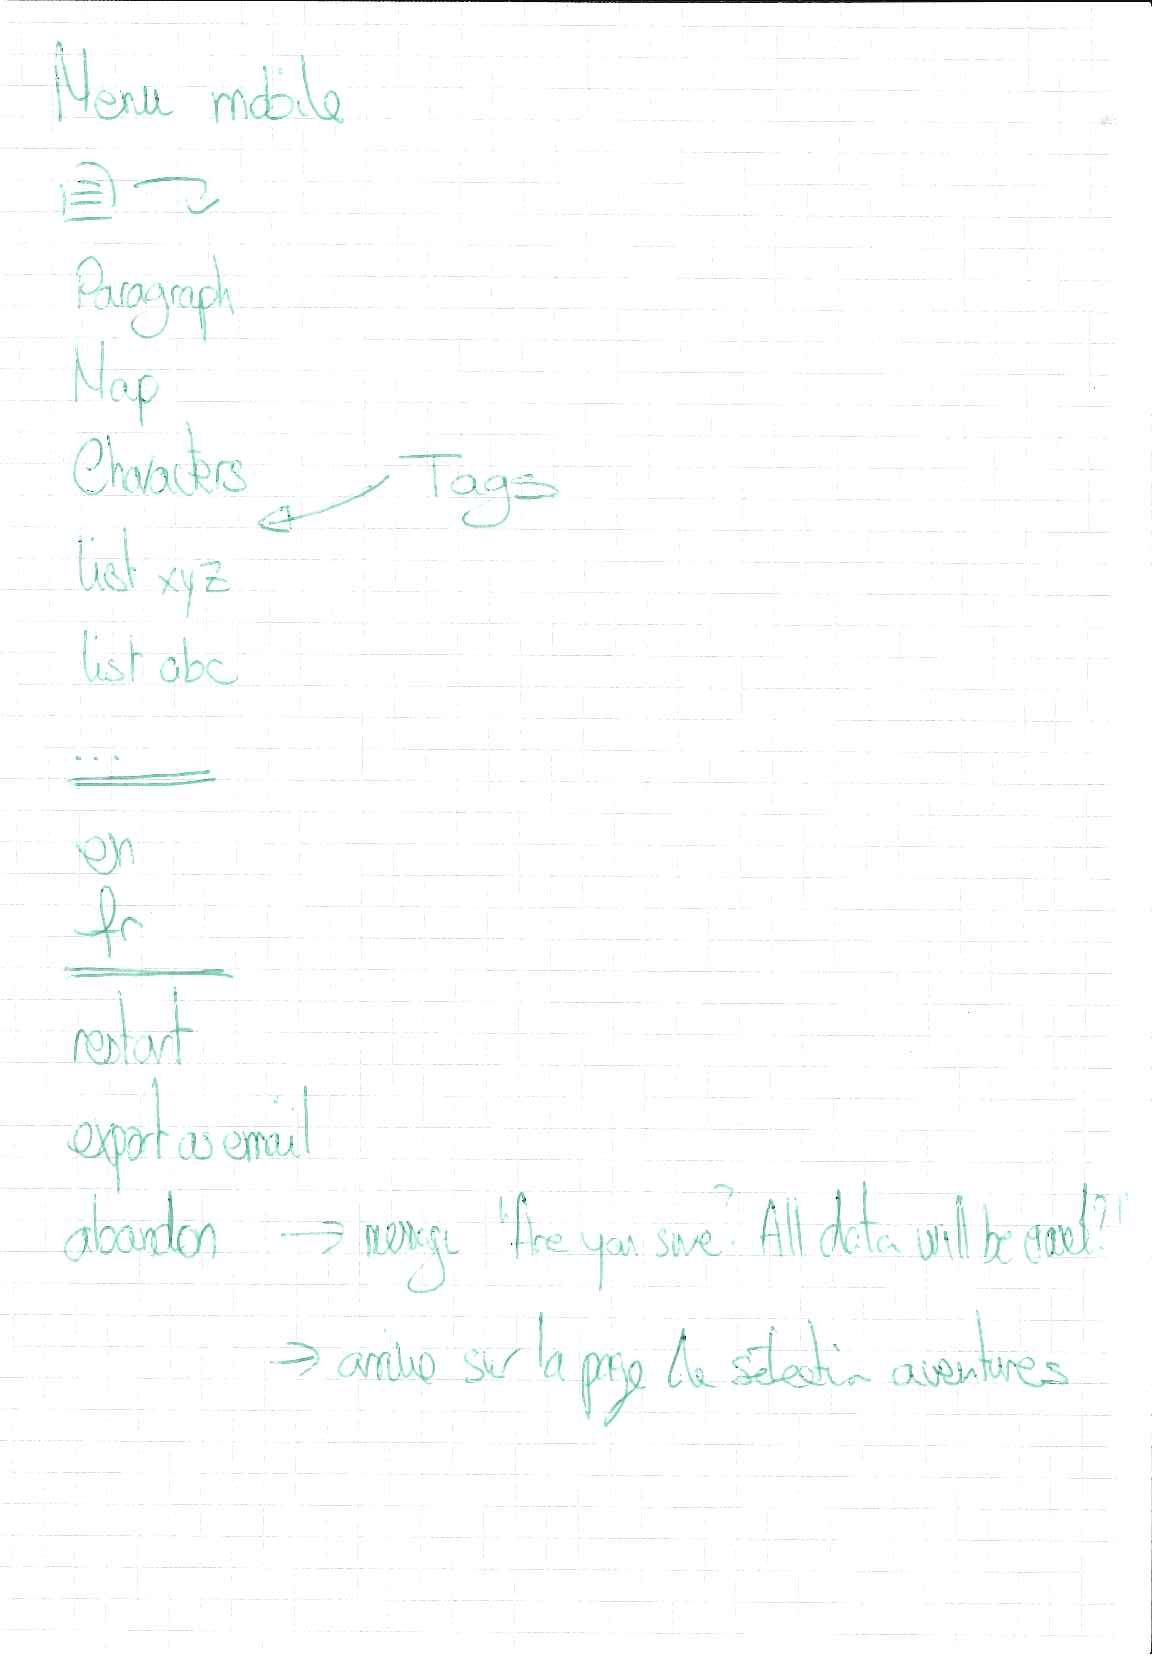 Menu mobile
Paragraph
Map
Characters
Tags
list xyz
list abc
...
en
fr
restart
export as email
abandon → message "Are you sure? All data will be ?"
→ arrive sur la page de sélection aventures